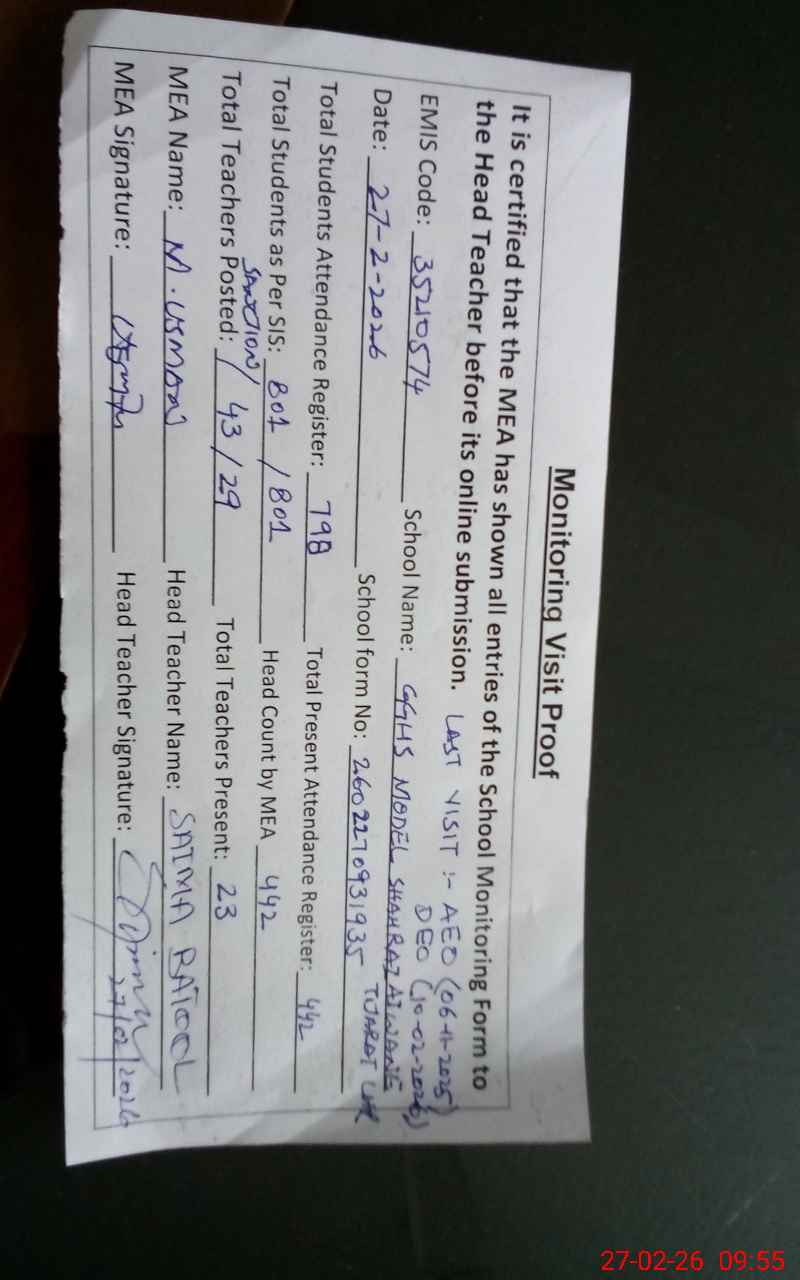 Monitoring Visit Proof
It is certified that the MEA has shown all entries of the School Monitoring Form to
the Head Teacher before its online submission. LAST VISIT :- AEO (06-11-2025)
DEO (10-02-2026)
EMIS Code: 35210574 School Name: GGHS MODEL SHAHRAZ AIWANE
TIJARAT LHR
Date: 27-2-2026 School form No: 2602270931935
Total Students Attendance Register: 798 Total Present Attendance Register: 442
Total Students as Per SIS: 801 / 801 Head Count by MEA 442
SANCTION/
Total Teachers Posted: 43 / 29 Total Teachers Present: 23
MEA Name: M. USMAN Head Teacher Name: SAIMA BATOOL
MEA Signature: Head Teacher Signature:
27/02/2026
27-02-26 09:55